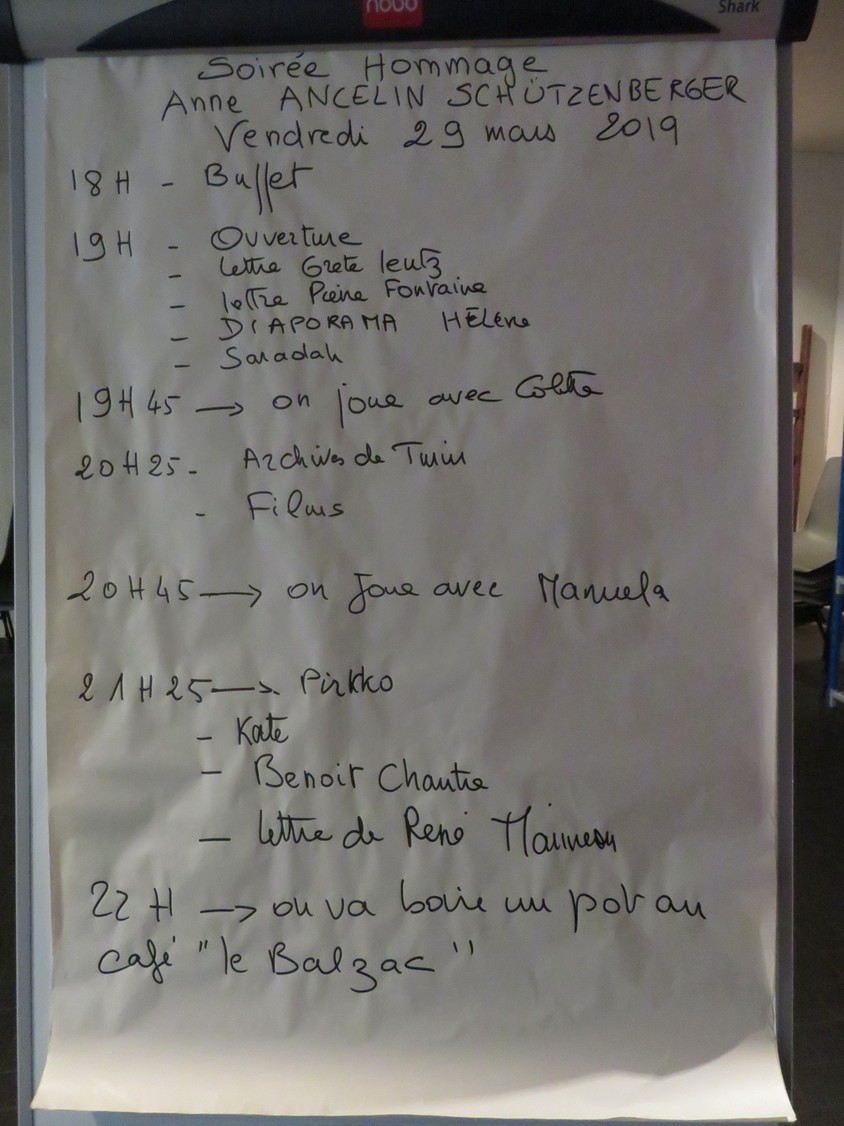 nobo
Shark
Soirée Hommage
Anne ANCELIN SCHÜTZENBERGER
Vendredi 29 mars 2019
18H - Buffet
19H - Ouverture
- lettre Grete leutz
- lettre Pierre Fontaine
- DIAPORAMA HÉLÈNE
- Saradah
19H45 → on joue avec Colette
20H25 - Archives de Twin
- Films
20H45 → on Joue avec Manuela
21H25 → Pirkko
- Kate
- Benoit Chantre
- lettre de René
22H → on va boire un pot au
café "le Balzac"